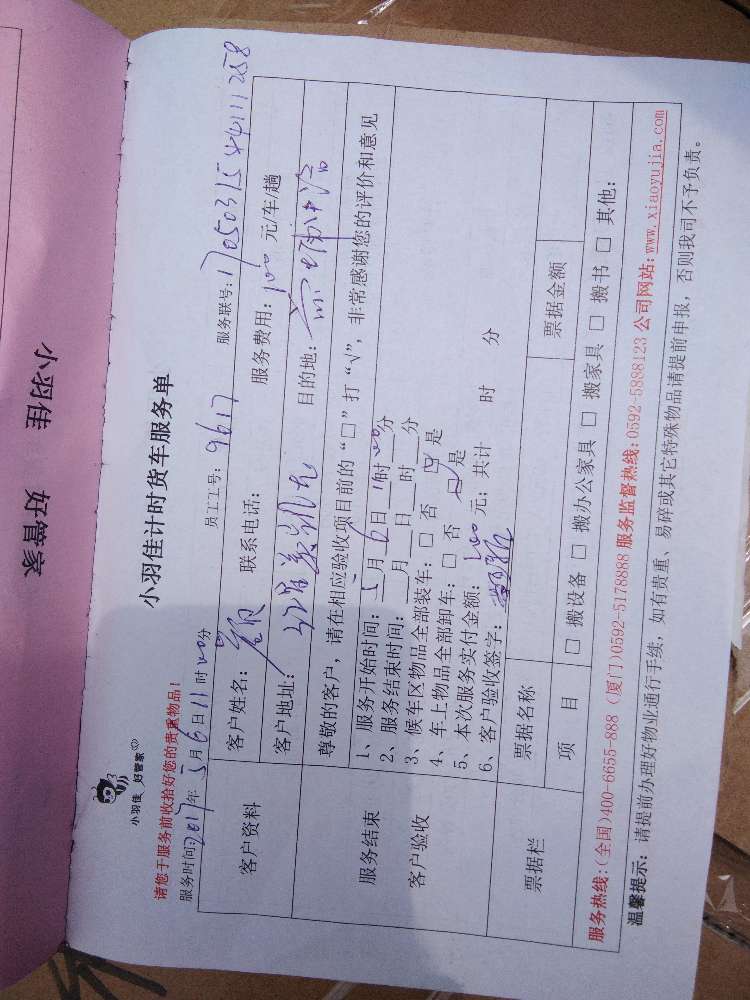 小羽佳 好管家
小羽佳 好管家
小羽佳计时货车服务单
请您于服务前收拾好您的贵重物品！
服务时间:2017年5月6日11时20分 员工工号: 9617 服务联号:
客户资料
客户姓名: 联系电话: 服务费用: 100 元/车/趟
客户地址: 目的地:
服务结束
客户验收
尊敬的客户，请在相应验收项目前的“□”打“√”，非常感谢您的评价和意见
1、服务开始时间: 5月6日11时20分
2、服务结束时间: 月 日 时 分
3、候车区物品全部装车: □ 否 ☑是
4、车上物品全部卸车: □ 否 ☑是
5、本次服务实付金额: 100元; 共计 时 分
6、客户验收签字:
票据栏
票据名称 票据金额
项 目 □ 搬设备 □ 搬办公家具 □ 搬家具 □ 搬书 □ 其他:
服务热线:(全国)400-6655-888 (厦门)0592-5178888 服务监督热线:0592-5888123 公司网站:www.xiaoyujia.com
温馨提示: 请提前办理好物业通行手续，如有贵重、易碎或其它特殊物品请提前申报，否则我司不予负责。